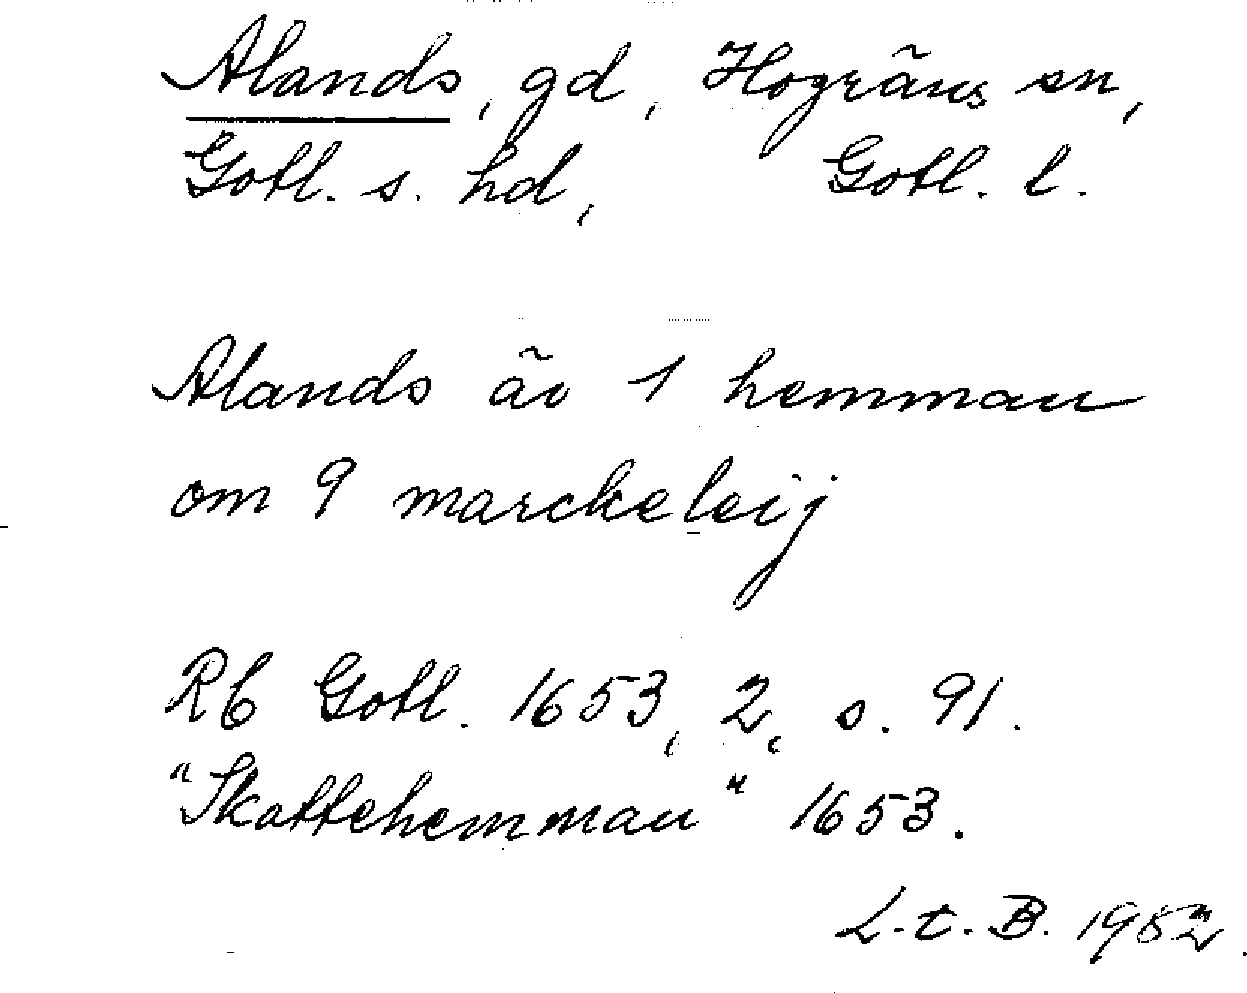 Alands, gd, Hogräns sn,
Gotl. s. hd, Gotl. l.
Alands är 1 hemman
om 9 marckeleij
RB Gotl. 1653, 2, s. 91.
"Skattehemman" 1653.
L.t.B. 1952.